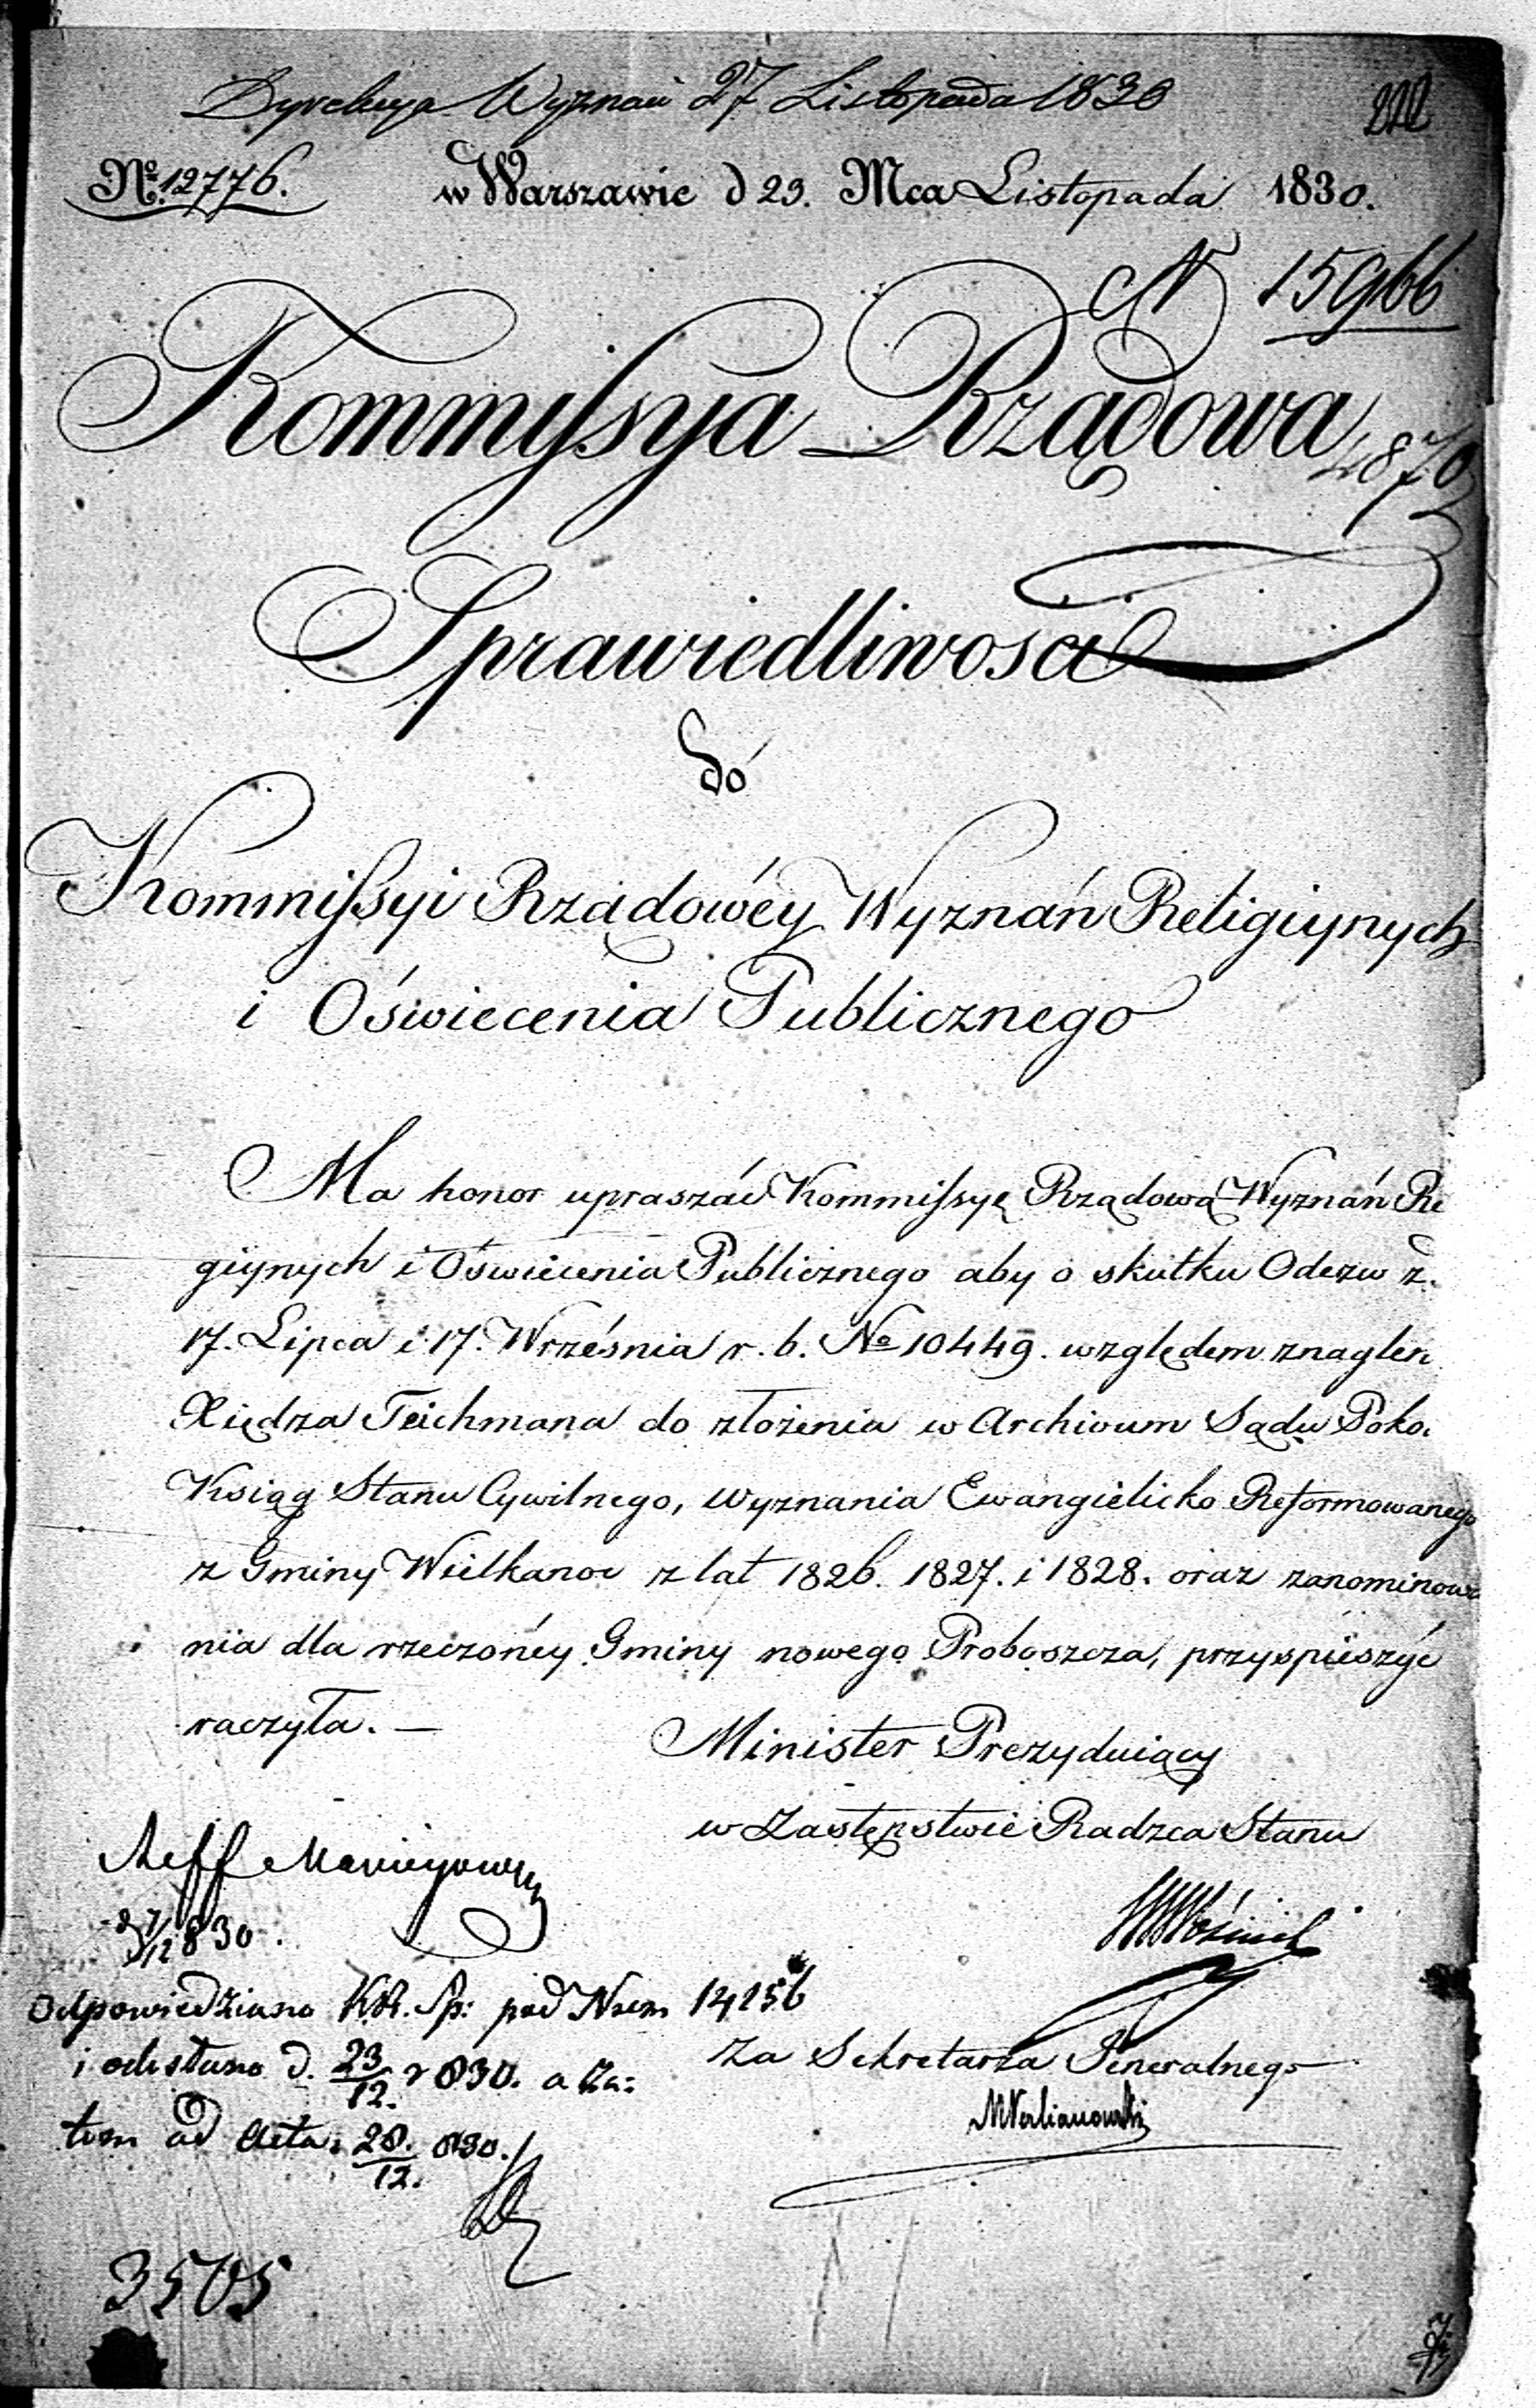 Dyrekcya Wyznań 27 Listopada 1830
222
No. 12776. w Warszawie d 23. Mca Listopada 1830.
N 15966
Kommyssya Rządowa
4870
Sprawiedliwości
dó
Kommissyi Rządowéy Wyznań Religiynych
i Oświecenia Publicznego
Ma honor upraszać Kommissyę Rządową Wyznań Re
giynych i Oświecenia Publicznego aby o skutku Odezw z.
17. Lipca i 17. Września r. b. No 10449. względem znaglen
Xiędza Teichmana do złożenia w Archivum Sądu Poko.
Ksiąg Stanu Cywilnego, wyznania Ewangielicko Reformowanego
z Gminy Wielkanoc z lat 1826. 1827. i 1828. oraz zanominowa
nia dla rzeczonéy Gminy nowego Proboszcza, przyspieszyć
raczyła. —
Minister Prezyduiący
w Zastępstwie Radzca Stanu
Reff
2/12 830.
Woźnicki
Odpowiedziano K.R. Sp: pod Nrem 14156
i odesłano d. 23/12. r 830. a za:
tem ad Acta. 28./12. 830.
Za Sekretarza Jeneralnego
3505